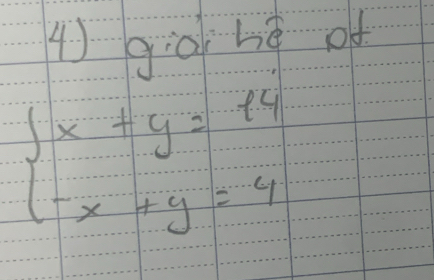 4) giải hệ pt
x + y = 14
-x + y = 4